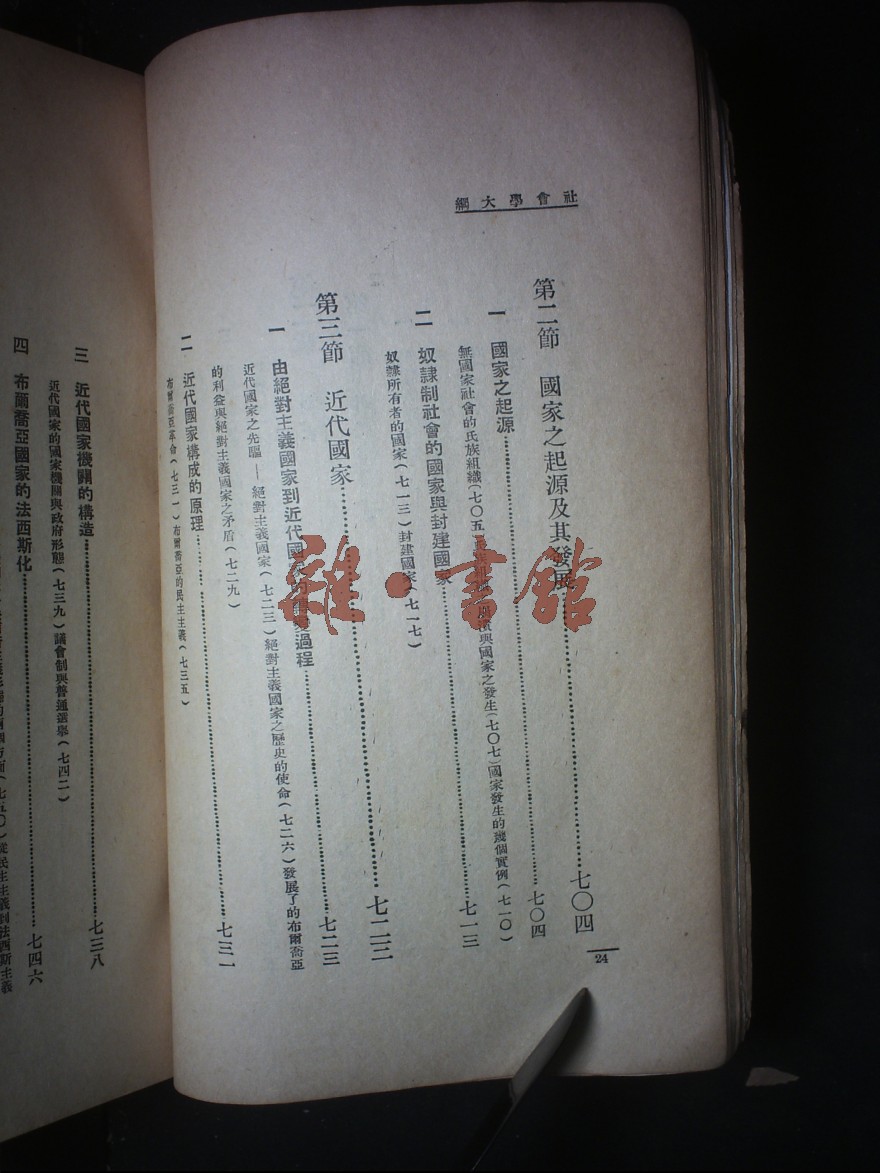 社會學大綱
第二節　國家之起源及其發展……七〇四
一　國家之起源……七〇四
無國家社會的氏族組織(七〇五)與國家之發生(七〇七)國家發生的幾個實例(七一〇)
二　奴隸制社會的國家與封建國家……七一三
奴隸所有者的國家(七一三)封建國家(七一七)
第三節　近代國家……七二三
一　由絕對主義國家到近代國家的過程……七二三
近代國家之先驅—絕對主義國家(七二三)絕對主義國家之歷史的使命(七二六)發展了的布爾喬亞
的利益與絕對主義國家之矛盾(七二九)
二　近代國家構成的原理……七三一
布爾喬亞革命(七三一)布爾喬亞的民主主義(七三五)
24
三　近代國家機關的構造……七三八
近代國家的國家機關與政府形態(七三九)議會制與普通選舉(七四二)
四　布爾喬亞國家的法西斯化……七四六
(七五〇)從民主主義到法西斯主義
雜·書館